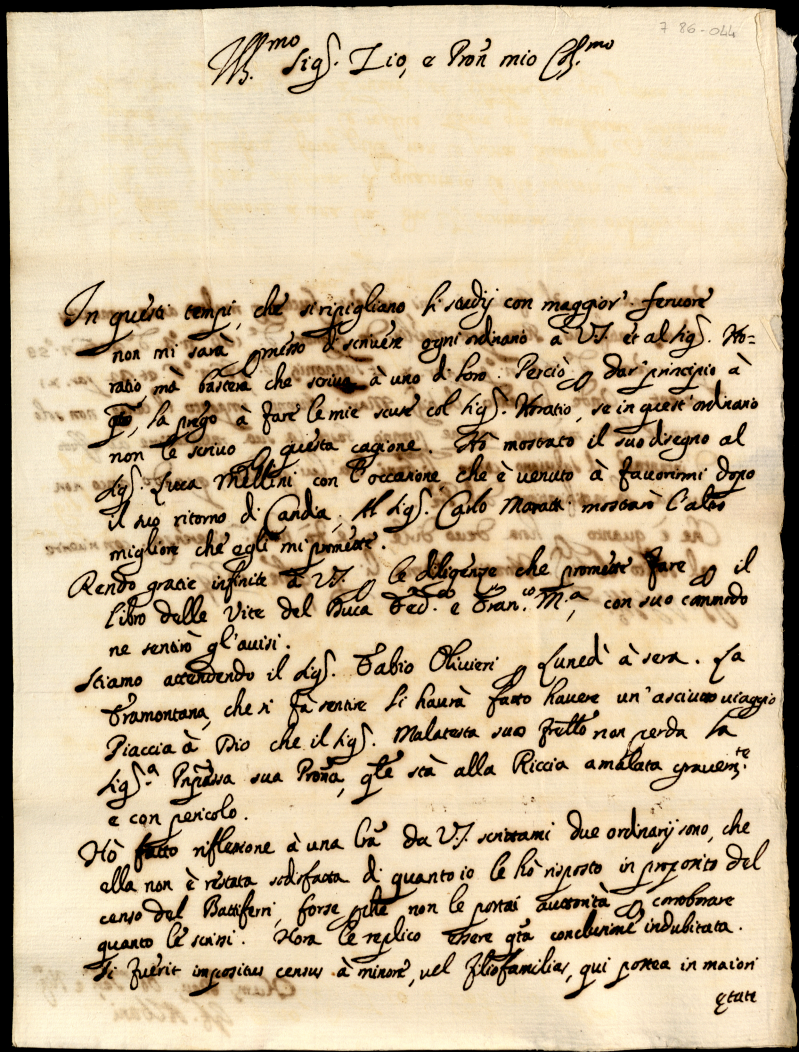 7 86-044
Ill.mo Sig.r Zio, e Pron mio Col.mo
In questi tempi, che si ripigliano li studij con maggior' fervore
non mi sarà pmesso di scrivere ogni ordinario à V.S. et al Sig.r Ho=
ratio, mà basterà che scriva à uno di loro. Perciò p dar' principio à
qto, la prego à fare le mie scuse col Sig.r Horatio, se in quest'ordinario
non le scrivo p questa cagione. Hò mostrato il suo disegno al
Sig.r Luca Mellini con l'occasione che è venuto à favorirmi dopo
il suo ritorno di Candia; Al Sig.r Carlo Maratti mostrarò l'altro
migliore che egli mi promette.
Rendo gratie infinite à V.S. p le diligenze che promette fare p il
libro delle Vite del Duca Fed.co e Fran.co M.a, con suo commodo
ne sentirò gl'avisi.
Stiamo attendendo il Sig.r Fabio Olivieri p Lunedì à sera. La
Tramontana, che si fà sentire li haurà fatto havere un'asciutto viaggio
Piaccia à Dio che il Sig.r Malatesta suo frello non perda la
Sig.ra Pnpessa sua Prona, qle stà alla Riccia amalata gravem.te
e con pericolo.
Hò fatto riflessione à una lra da V.S. scrittami due ordinarij sono, che
ella non è restata sodisfatta di quanto io le hò risposto in proposito del
censo del Battiferri, forse pche non le portai auttorità p corroborare
quanto le scrissi. Hora le replico essere qta conclusione indubitata.
Si fuerit impositus census à minore, vel filiofamilias, qui postea in maiori
ętate